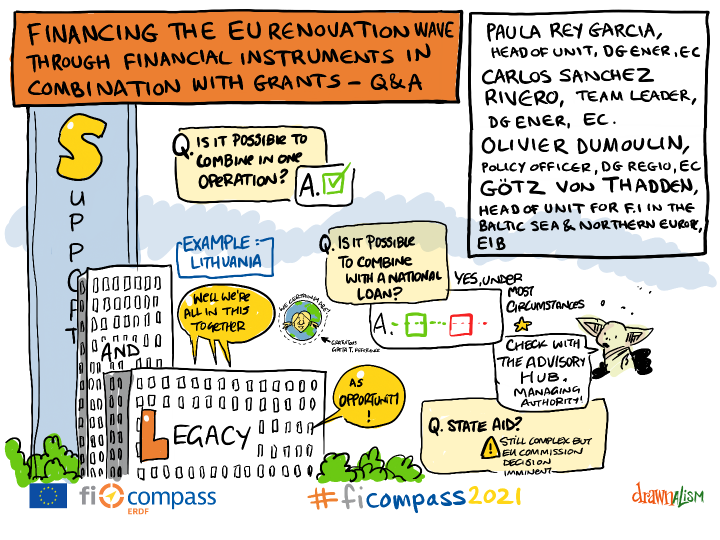 FINANCING THE EU RENOVATION WAVE
THROUGH FINANCIAL INSTRUMENTS IN
COMBINATION WITH GRANTS - Q&A
PAULA REY GARCIA,
HEAD OF UNIT, DG ENER, EC
CARLOS SANCHEZ
RIVERO, TEAM LEADER,
DG ENER, EC.
OLIVIER DUMOULIN,
POLICY OFFICER, DG REGIO, EC
GÖTZ VON THADDEN,
HEAD OF UNIT FOR F.I IN THE
BALTIC SEA & NORTHERN EUROPE,
EIB
SUPPORT
Q. IS IT POSSIBLE TO
COMBINE IN ONE
OPERATION?
A.
EXAMPLE:-
LITHUANIA
WELL WE'RE
ALL IN THIS
TOGETHER
WE CERTAINLY ARE!
GRETA T. REFERENCE
Q. IS IT POSSIBLE
TO COMBINE
WITH A NATIONAL
LOAN?
YES, UNDER
MOST
CIRCUMSTANCES
A.
CHECK WITH
THE ADVISORY
HUB.
MANAGING
AUTHORITY!
AND
LEGACY
AS
OPPORTUNITY
!
Q. STATE AID?
STILL COMPLEX BUT
EU COMMISSION
DECISION
IMMINENT
fi compass
ERDF
#ficompass2021
drawnalism